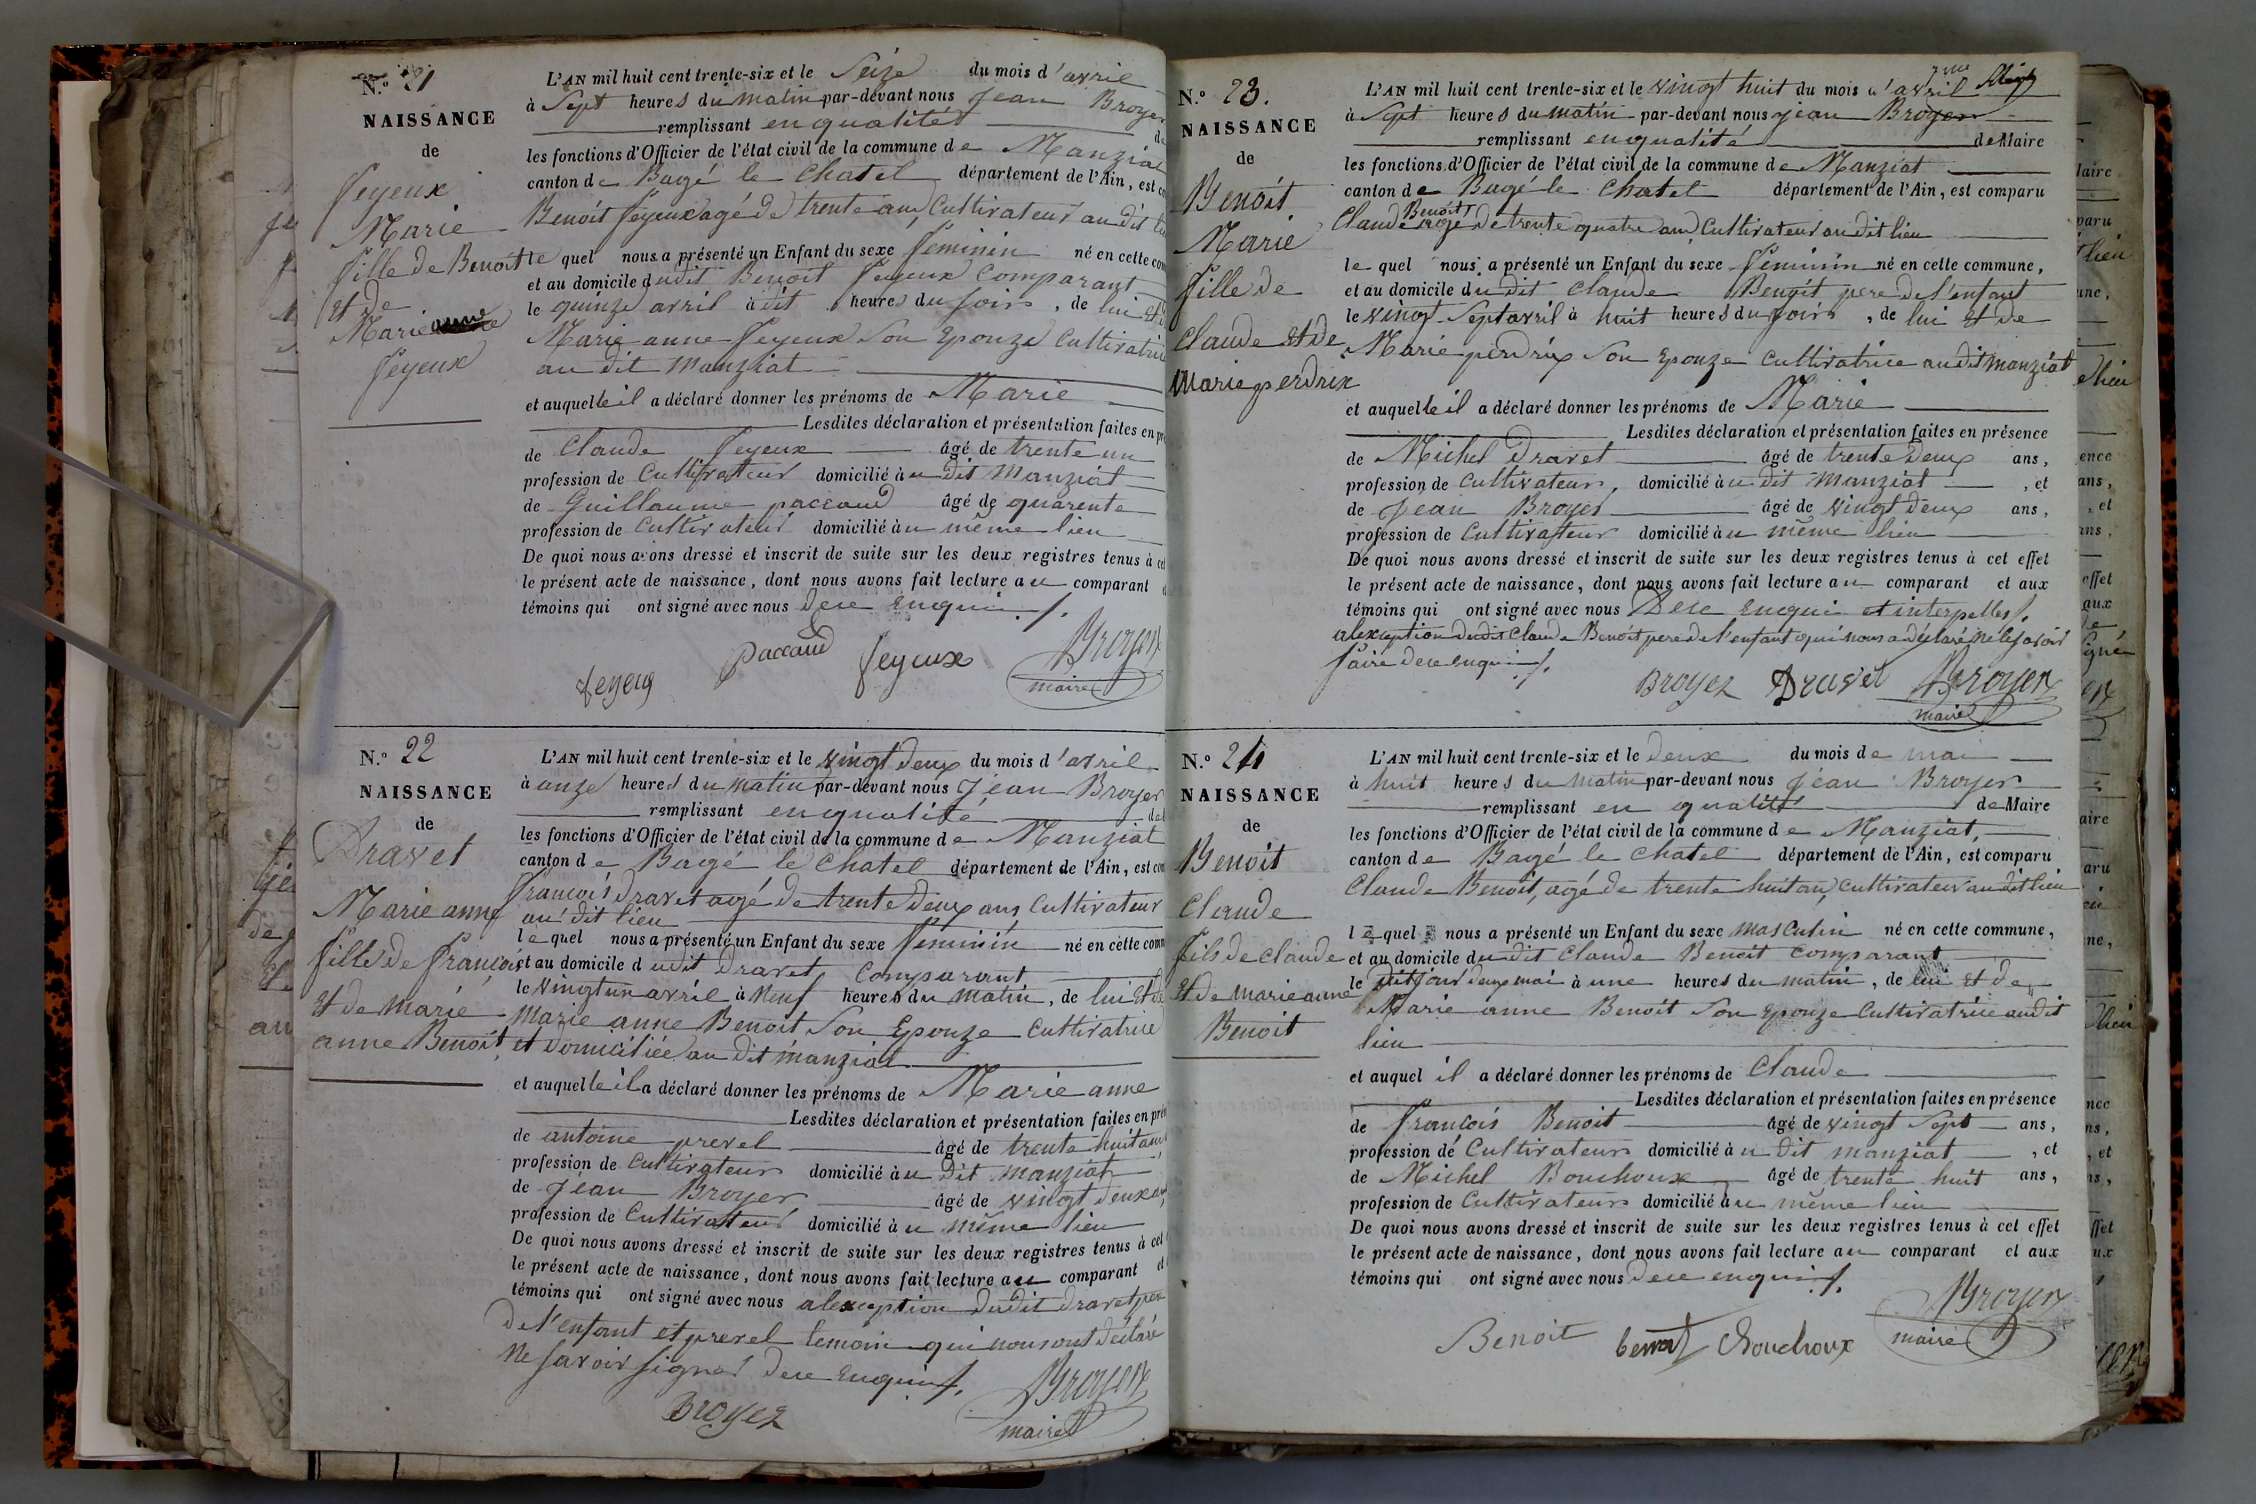 N.º 21
NAISSANCE
de
feyeux
Marie
fille de Benoit
et de
Marie anne
feyeux
L'AN mil huit cent trente-six et le Seize du mois d'avril
à Sept heures du matin par-devant nous Jean Broyer
remplissant en qualité de
les fonctions d'Officier de l'état civil de la commune de Manziat
canton de Bagé le Chatel département de l'Ain, est
Benoit feyeux agé de trente ans, Cultivateur au dit
le quel nous a présenté un Enfant du sexe feminin né en cette
et au domicile dudit Benoit feyeux Comparant
le quinze avril à dit heures du soir, de lui et de
Marie anne feyeux Son Epouze Cultivatrice
au dit manziat
et auquelle il a déclaré donner les prénoms de Marie
Lesdites déclaration et présentation faites en
de Claude feyeux âgé de trente un
profession de Cultivateur domicilié àu dit manziat
de Guillaume paccaud âgé de quarente
profession de Cultivateur domicilié àu même lieu
De quoi nous avons dressé et inscrit de suite sur les deux registres tenus à cet
le présent acte de naissance, dont nous avons fait lecture au comparant
témoins qui ont signé avec nous dece enquis
feyeux paccaud feyeux Broyer
maire
N.º 22
NAISSANCE
de
Dravet
Marie anne
fille de françois
et de marie
anne Benoit
L'AN mil huit cent trente-six et le vingt deux du mois d'avril
à onze heures du matin par-devant nous Jean Broyer
remplissant en qualité de
les fonctions d'Officier de l'état civil de la commune de Manziat
canton de Bagé le Chatel département de l'Ain, est
françois dravet agé de trente deux ans Cultivateur
au dit lieu
le quel nous a présenté un Enfant du sexe feminin né en cette
et au domicile dudit dravet Comparant
le vingt un avril à Neuf heures du matin, de lui et de
marie anne Benoit Son Epouze Cultivatrice
et domiciliée au dit manziat
et auquelle il a déclaré donner les prénoms de Marie anne
Lesdites déclaration et présentation faites en
de antoine prevel âgé de trente huit ans
profession de Cultivateur domicilié àu dit manziat
de Jean Broyer âgé de vingt deux ans
profession de Cultivateur domicilié àu même lieu
De quoi nous avons dressé et inscrit de suite sur les deux registres tenus à cet
le présent acte de naissance, dont nous avons fait lecture au comparant et
témoins qui ont signé avec nous alexception dudit dravet pere
de l'enfant et prevel temoin qui nous ont déclaré
ne savoir signer dece Enquis
Broyer Broyer
maire
N.º 23.
NAISSANCE
de
Benoit
Marie
fille de
Claude et de
Marie perdrix
L'AN mil huit cent trente-six et le vingt huit du mois d'avril
à Sept heures du matin par-devant nous Jean Broyer
remplissant en qualité de Maire
les fonctions d'Officier de l'état civil de la commune de Manziat
canton de Bagé le Chatel département de l'Ain, est comparu
Claude Benoit agé de trente quatre ans, Cultivateur au dit lieu
le quel nous a présenté un Enfant du sexe feminin né en cette commune,
et au domicile du dit Claude Benoit pere de l'enfant
le vingt Sept avril à huit heures du soir, de lui et de
Marie perdrix Son Epouze Cultivatrice au dit manziat
et auquelle il a déclaré donner les prénoms de Marie
Lesdites déclaration et présentation faites en présence
de Michel Dravet âgé de trente deux ans,
profession de Cultivateur, domicilié àu dit manziat, et
de Jean Broyer âgé de vingt deux ans,
profession de Cultivateur domicilié àu même lieu
De quoi nous avons dressé et inscrit de suite sur les deux registres tenus à cet effet
le présent acte de naissance, dont nous avons fait lecture au comparant et aux
témoins qui ont signé avec nous dece enquis et interpellés
alexception dudit Claude Benoit pere de l'enfant qui nous a déclaré ne le savoir
faire dece enquis
Broyer Dravet Broyer
maire
N.º 24
NAISSANCE
de
Benoit
Claude
fils de Claude
et de marie anne
Benoit
L'AN mil huit cent trente-six et le deux du mois de mai
à huit heures du matin par-devant nous Jean Broyer
remplissant en qualité de Maire
les fonctions d'Officier de l'état civil de la commune de Manziat,
canton de Bagé le Chatel département de l'Ain, est comparu
Claude Benoit, agé de trente huit ans, Cultivateur au dit lieu
le quel nous a présenté un Enfant du sexe masculin né en cette commune,
et au domicile du dit Claude Benoit Comparant
le dit jour deux mai à une heures du matin, de lui et de
Marie anne Benoit Son Epouze Cultivatrice au dit
lieu
et auquel il a déclaré donner les prénoms de Claude
Lesdites déclaration et présentation faites en présence
de françois Benoit âgé de vingt Sept ans,
profession de Cultivateur domicilié àu dit manziat, et
de Michel Bouchoux âgé de trente huit ans,
profession de Cultivateur domicilié àu même lieu
De quoi nous avons dressé et inscrit de suite sur les deux registres tenus à cet effet
le présent acte de naissance, dont nous avons fait lecture au comparant et aux
témoins qui ont signé avec nous dece enquis
Benoit benoit Bouchoux Broyer
maire